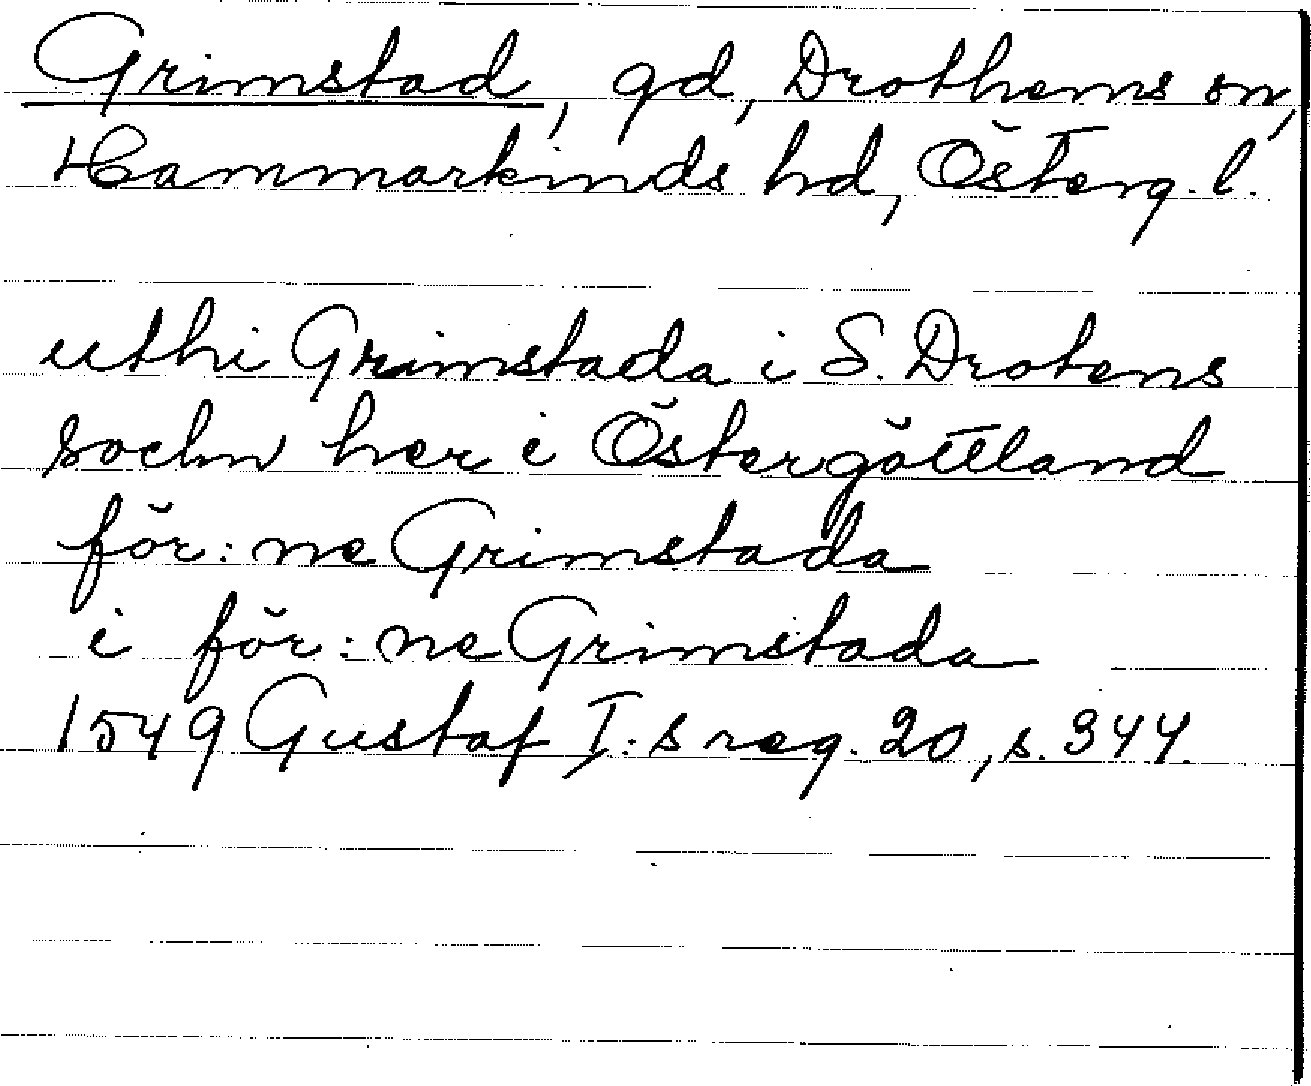 Grimstad, gd, Drothems sn,
Hammarkinds hd, Österg. l.
uthi Grimstada i S. Drotens
sochn her i Östergöttland
för: ne Grimstada
i för: ne Grimstada
1549 Gustaf I: s reg. 20, s. 344.